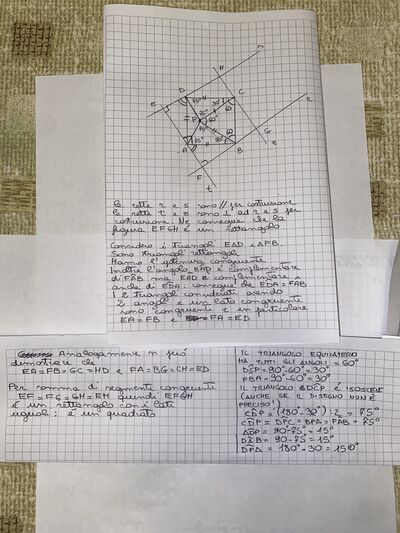 D
H
C
E
P
A
B
G
F
t
LE RETTE r E s SONO // PER COSTRUZIONE
LE RETTE t E SONO ⊥ AD r E s PER
COSTRUZIONE. NE CONSEGUE CHE LA
FIGURA EFGH È UN RETTANGOLO
CONSIDERO I TRIANGOLI EAD E AFB.
SONO TRIANGOLI RETTANGOLI
HANNO L'IPOTENUSA CONGRUENTE
INOLTRE L'ANGOLO EAD È COMPLEMENTARE
DI FAB MA EAD È COMPLEMENTARE
ANCHE DI EDA: CONSEGUE CHE EDA = FAB
I 2 TRIANGOLI CONSIDERATI AVENDO
2 ANGOLI UN LATO CONGRUENTE
SONO CONGRUENTI E IN PARTICOLARE
EA = FB E FA = ED
ANALOGAMENTE SI PUÒ
DIMOSTRARE CHE
EA = FB = GC = HD E FA = BG = CH = ED
PER SOMMA DI SEGMENTI CONGRUENTI
EF = FG = GH = EH QUINDI EFGH
È UN RETTANGOLO CON I LATI
UGUALI: È UN QUADRATO
IL TRIANGOLO EQUILATERO
HA TUTTI GLI ANGOLI = 60°
DĈP = 90°-60° = 30°
PBA = 90°-60° = 30°
IL TRIANGOLO DCP È ISOSCELE
(ANCHE SE IL DISEGNO NON È
PRECISO!)
CD̂P = (180°-30°):2 = 75°
CD̂P = DP̂C = BPA = PAB = 75°
AD̂P = 90-75° = 15°
DÂP = 90-75 = 15°
DP̂A = 180°-30 = 150°